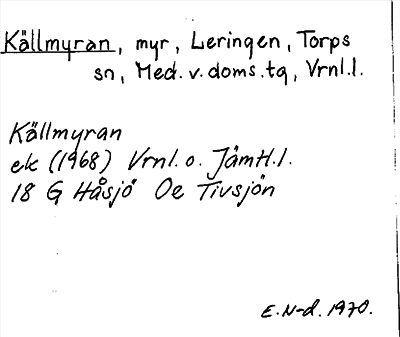 Källmyran, myr, Leringen, Torps
sn, Med. v. doms. tg, Vrnl. l.
Källmyran
ek (1968) Vrnl. o. Jämtl. l.
18 G Håsjö Oe Tivsjön
E. N-d. 1970.